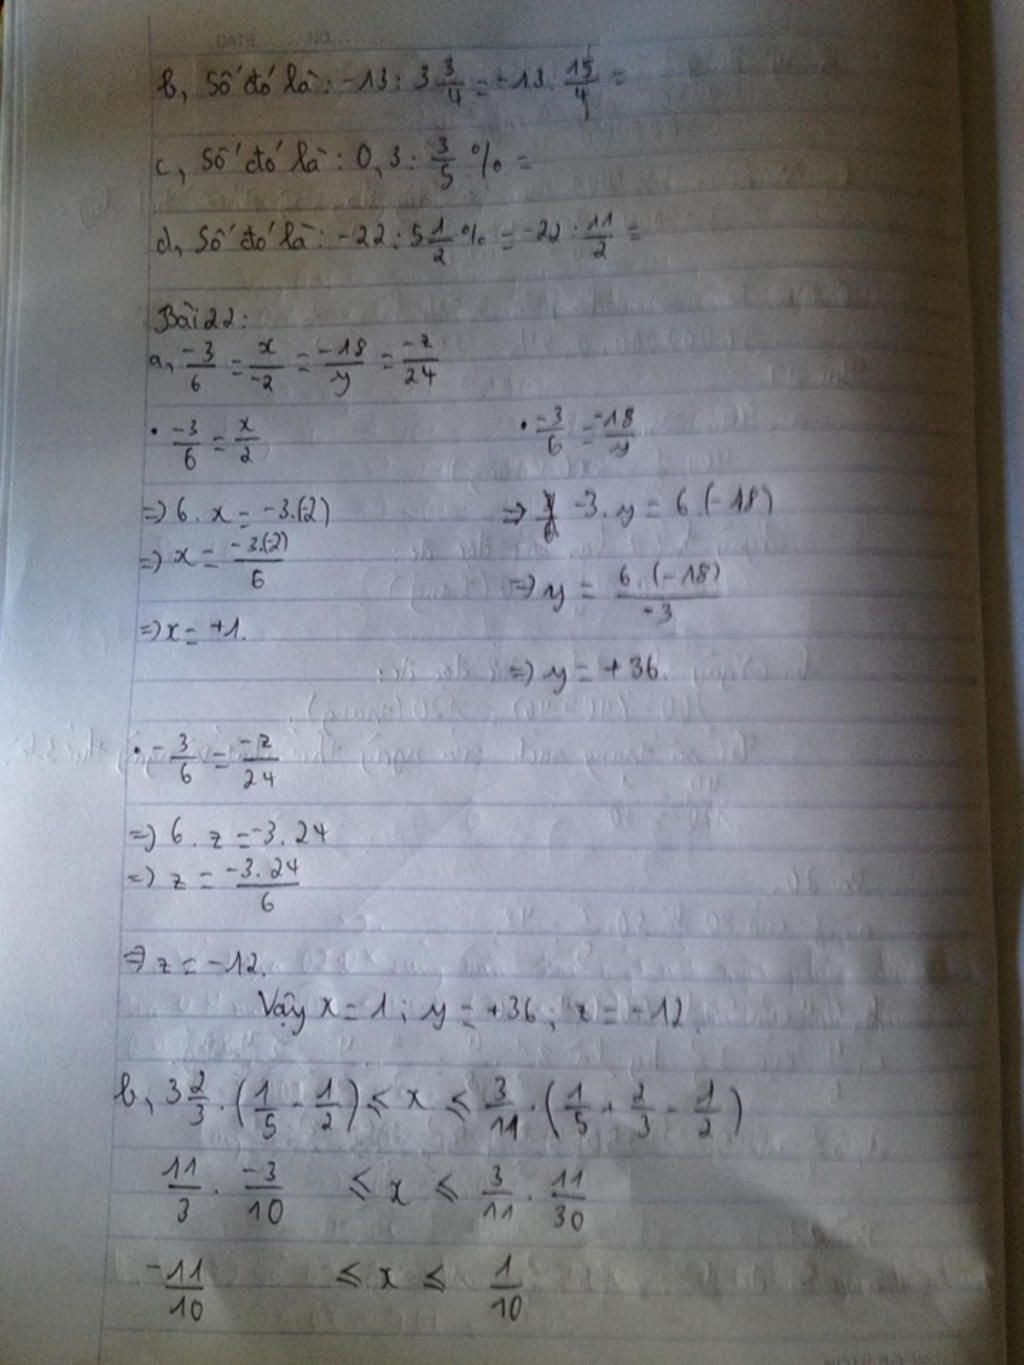 DATE NO.
b, Số đó là: -13 : 3 3/4 = -13 : 15/4 =
c, Số đó là: 0,3 : 3/5 % =
d, Số đó là: -22 : 5 1/2 % = -22 : 11/2 =
Bài 22:
a, -3/6 = x/-2 = -18/y = -z/24
• -3/6 = x/2
=> 6 . x = -3.(-2)
=> x = -3.(-2)/6
=> x = +1.
• -3/6 = -18/y
=> -3. y = 6.(-18)
=> y = 6.(-18)/-3
=> y = +36.
• -3/6 = -z/24
=> 6 . z = -3. 24
=> z = -3.24/6
=> z = -12.
Vậy x = 1 ; y = +36 ; z = -12.
b, 3 2/3 . (1/5 - 1/2) ≤ x ≤ 3/11 . (1/5 + 2/3 - 1/2)
11/3 . -3/10 ≤ x ≤ 3/11 . 11/30
-11/10 ≤ x ≤ 1/10